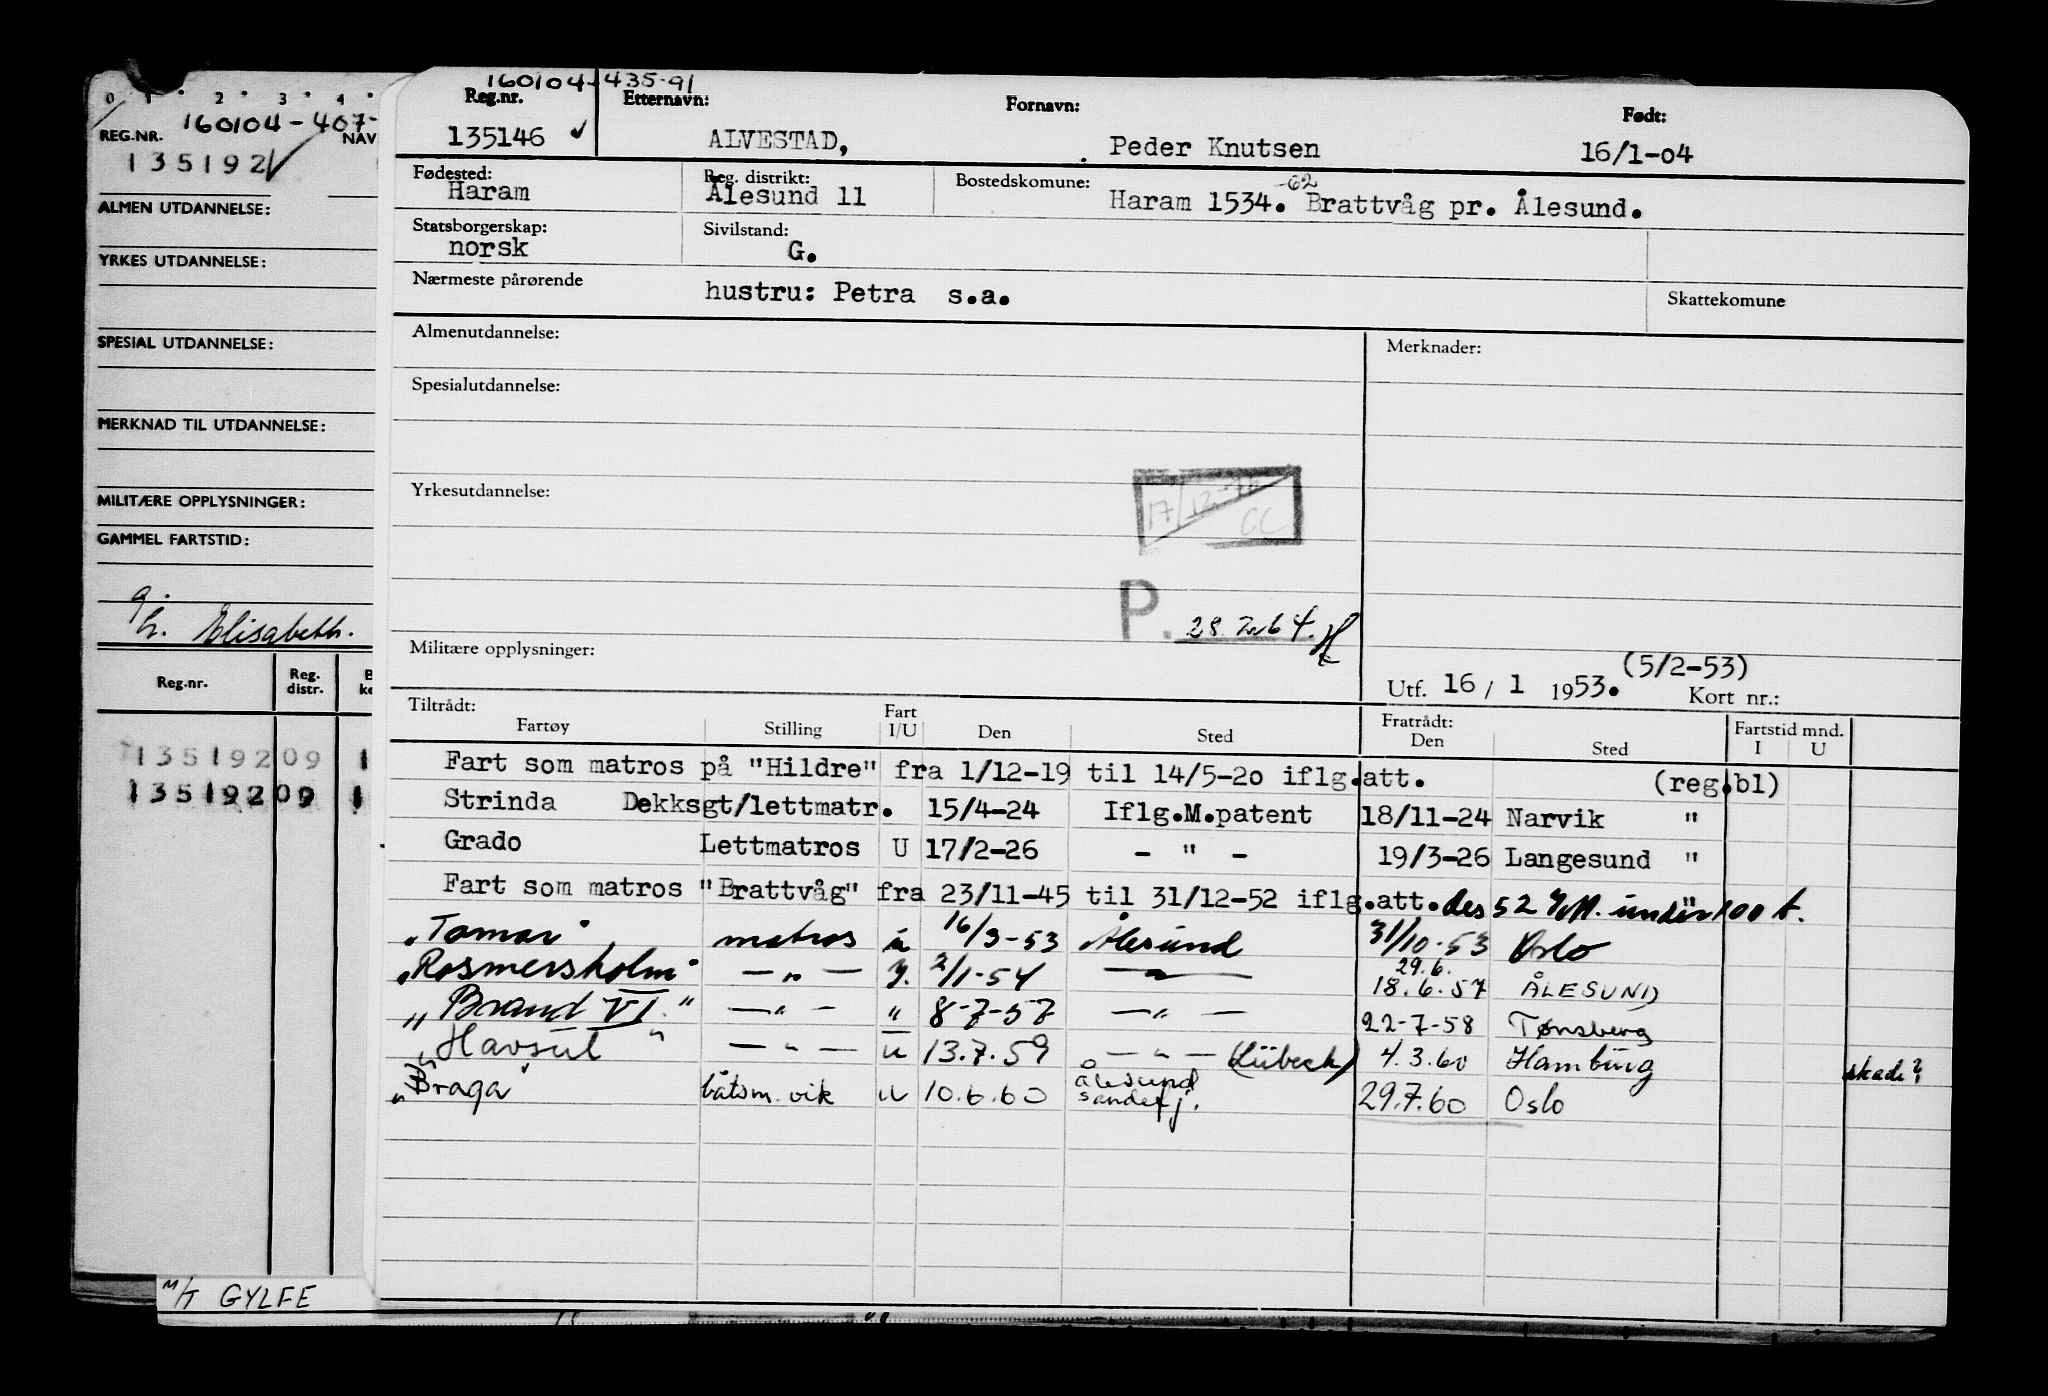 0 1 2 3 4
REG.NR. 160104-407- NAV
135192
ALMEN UTDANNELSE:
YRKES UTDANNELSE:
SPESIAL UTDANNELSE:
MERKNAD TIL UTDANNELSE:
MILITÆRE OPPLYSNINGER:
GAMMEL FARTSTID:
Elisabeth.
Reg.nr. Reg. distr.
135192 09 1
135192 09 1
M/T GYLFE
160104-435-91
Reg.nr. Etternavn: Fornavn: Født:
135146 ALVESTAD, Peder Knutsen 16/1-04
Fødested: Reg. distrikt: Bostedskomune:
Haram Ålesund 11 Haram 1534. -62 Brattvåg pr. Ålesund.
Statsborgerskap: Sivilstand:
norsk G.
Nærmeste pårørende hustru: Petra s.a. Skattekomune
Almenutdannelse: Merknader:
Spesialutdannelse:
Yrkesutdannelse:
17/12-76
CC
P. 28.7.64.
Militære opplysninger:
(5/2-53)
Utf. 16 / 1 1953. Kort nr.:
Tiltrådt: Fart Fratrådt: Fartstid mnd.
Fartøy Stilling I/U Den Sted Den Sted I U
Fart som matros på "Hildre" fra 1/12-19 til 14/5-20 iflg.att. (reg.bl)
Strinda Dekksgt/lettmatr. 15/4-24 Iflg.M.patent 18/11-24 Narvik "
Grado Lettmatros U 17/2-26 - " - 19/3-26 Langesund "
Fart som matros "Brattvåg" fra 23/11-45 til 31/12-52 iflg.att. des 52 under 100 t.
"Tamar" matros u 16/3-53 Ålesund 31/10-53 Oslo
29.6.
"Rosmersholm" — " — 2/1-54 — " — 18.6.57 ÅLESUND
"Brand VI." — " — " 8-7-57 — " — 22-7-58 Tønsberg
"Havsul" — " — u 13.7.59 — " — (Lübeck) 4.3.60 Hamburg skade?
"Braga" båtsm. vik u 10.6.60 Ålesund Sandefj. 29.7.60 Oslo